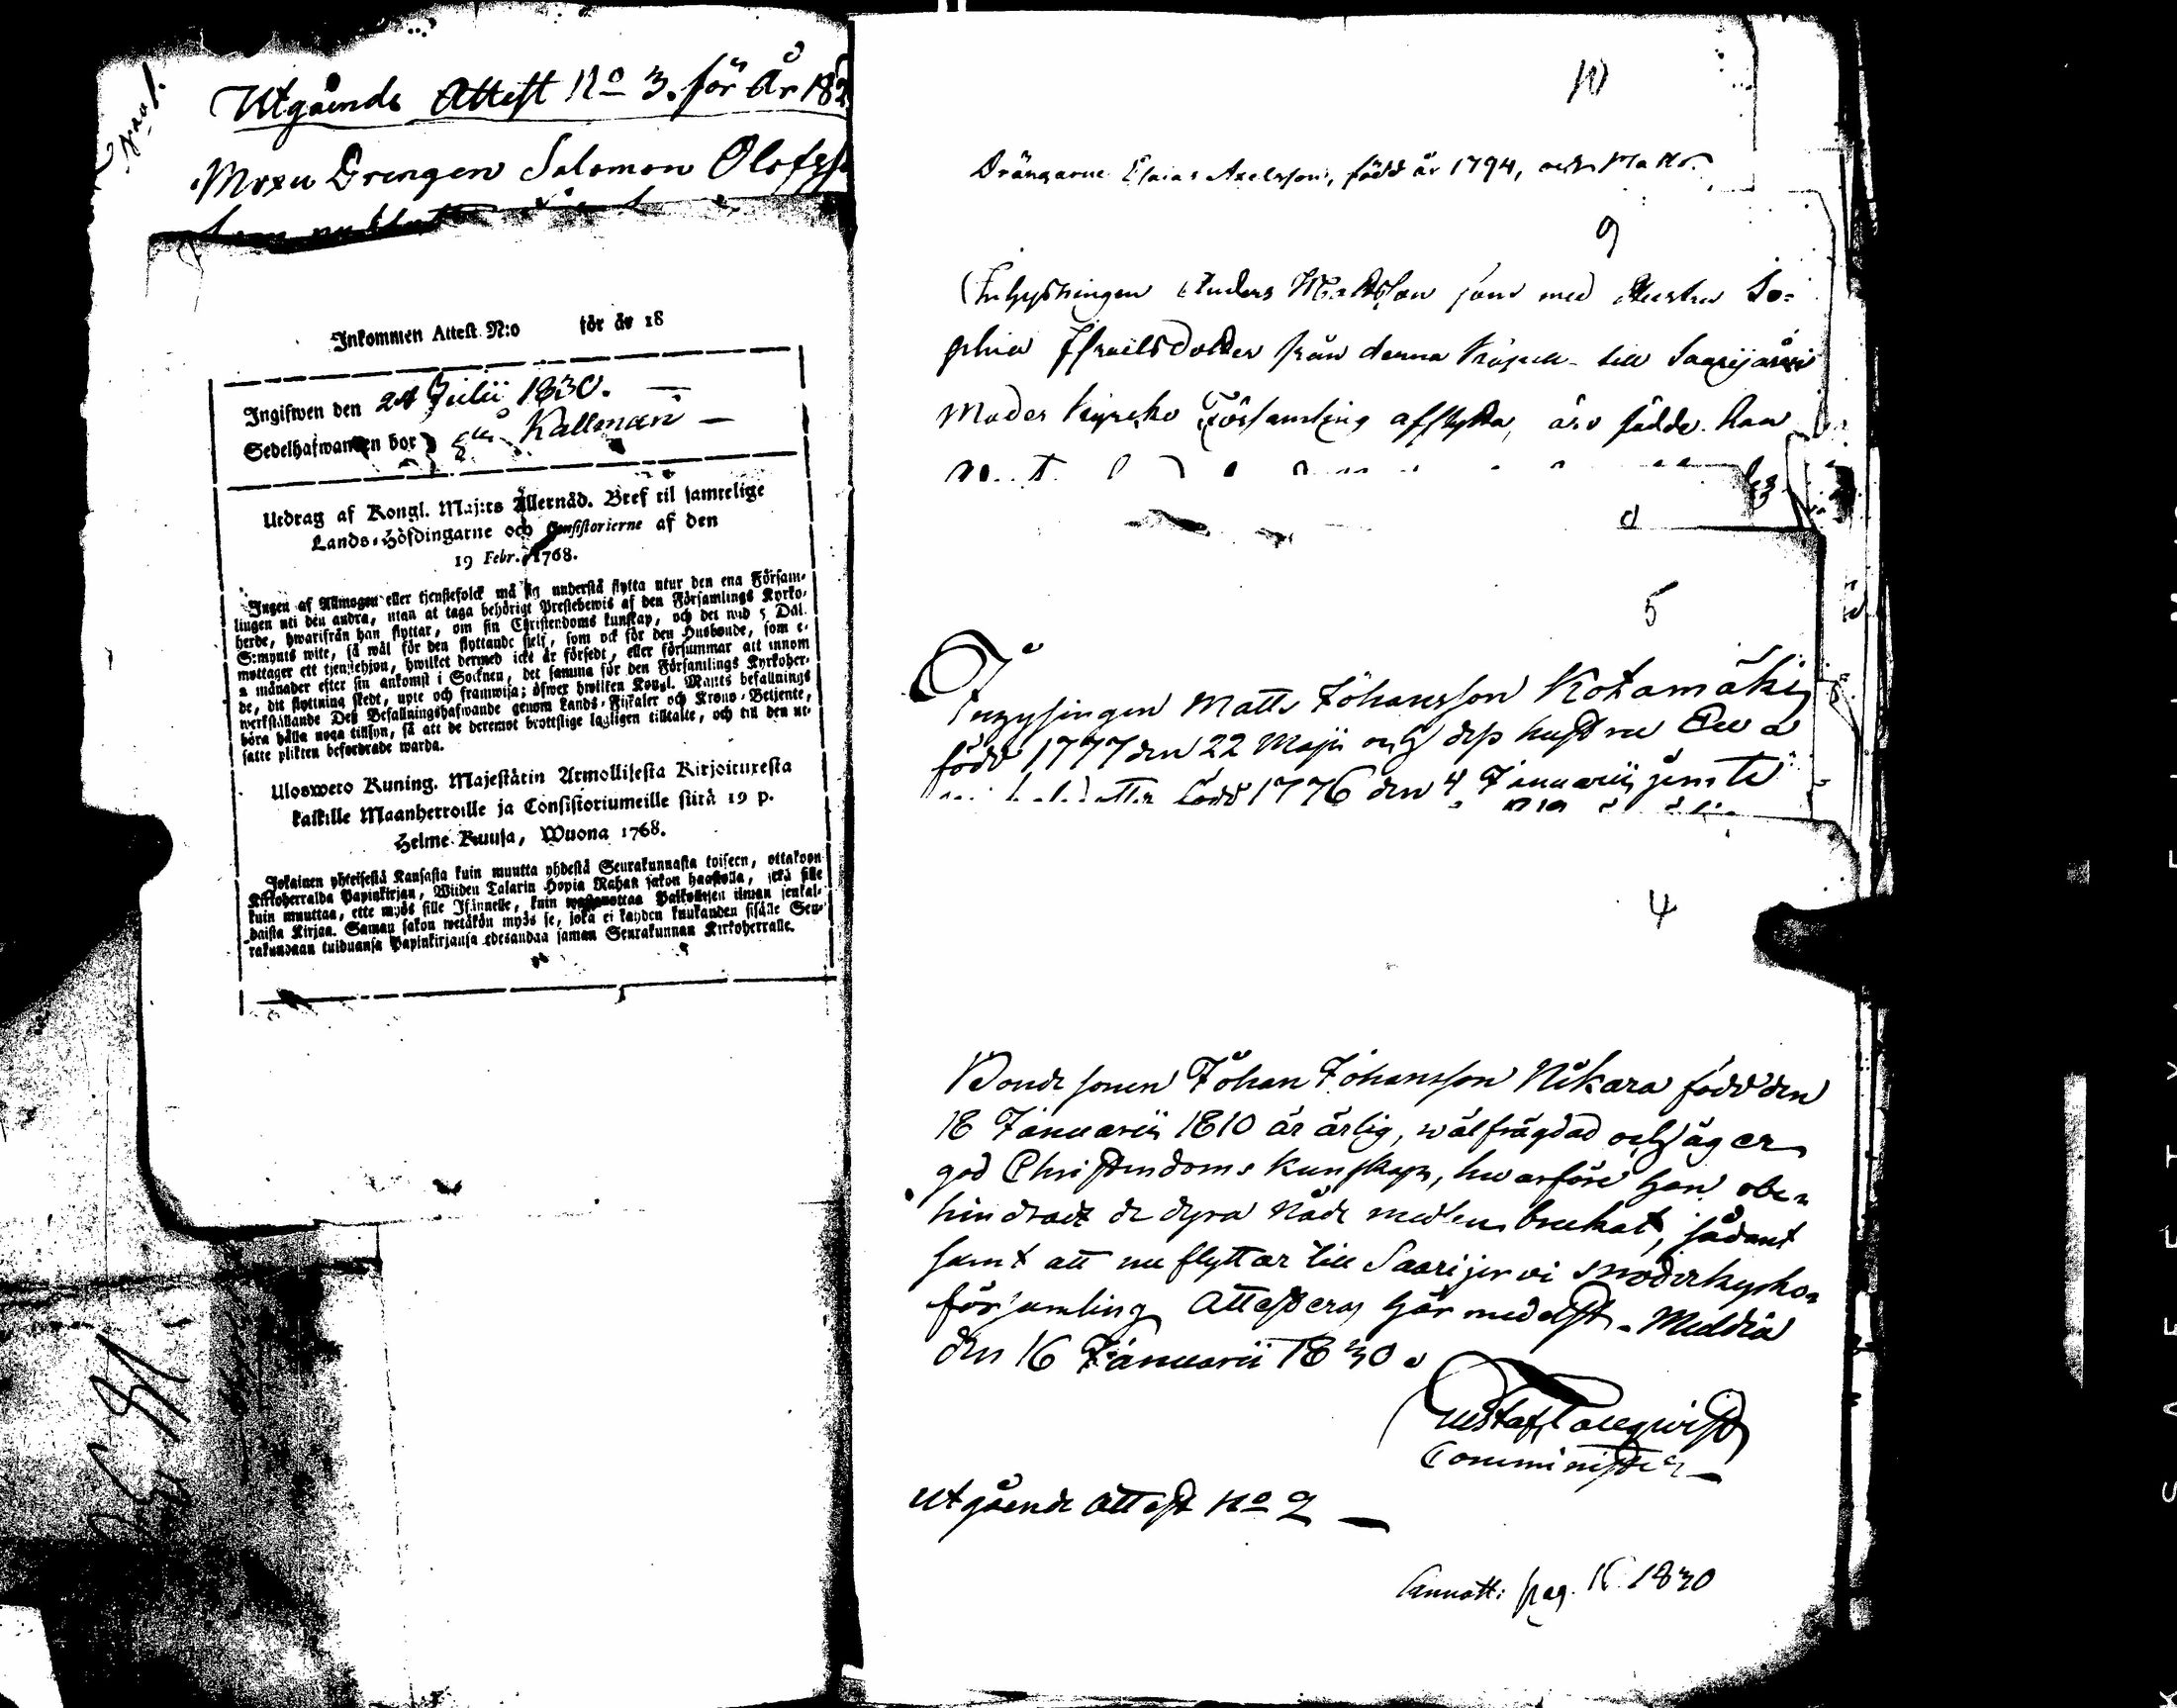 Utgående Attest No 3. för År 182
Drengen Salomon Olofss
Inkommen Attest N:o för år 18
Ingifwen den 24 Julii 1830. —
Sedelhafwanden bor Kallmari —
Utdrag af Kongl. Maj:ts Allernåd. Bref til samtelige
Lands-Höfdingarne och Consistorierne af den
19 Febr. 1768.
Ingen af Allmogen eller tjenstefolck må sig understå flytta utur den ena Församlingen uti den andra, utan at taga behörigt Prestebewis af den Församlings Kyrko-
herde, hwarifrån han flyttar, om sin Christendoms kunskap, och det wid 5 Dal.
S:mynts wite, så wäl för den flyttande sielf, som ock för den Husbonde, som e-
mottager ett tjenstehjon, hwilket dermed icke är försedt, eller försummar att innom
2 månader efter sin ankomst i Socknen, det samma för den Församlings Kyrkoher-
de, dit flyttning skedt, upte och framwisa; öfwer hwilken Kongl. Maj:ts befallnings
werkställande Des Befallningshafwande genom Lands-Fiskaler och Krono-Betjente,
böra hålla noga tillsyn, så att de deremot brottslige lagligen tilltalte, och till den ut-
satte plikten befordrade warda.
Uloswero Kuning. Majestätin Armollisesta Kirjoituxesta
kaikille Maanherroille ja Consistoriumeille siitä 19 p.
Helme-Kuusa, Wuona 1768.
Jokainen yhteisestä Kansasta kuin muutta yhdestä Seurakunnasta toiseen, ottakoon
Kirkoherralda Papinkirjan, Wiiden Talarin Hopia Rahan sakon haastolla, sekä sille
kuin muuttaa, ette myös sille Isännelle, kuin wastaanottaa Palkollisen ilman senkal-
daista Kirjaa. Saman sakon wetäkön myös se, joka ei kahden kuukauden sisälle Seu-
rakundaan tulduansa Papinkirjansa edesandaa saman Seurakunnan Kirkoherralle.
10
Drängarne Esaias Axelsson, född år 1794, och Matts
9
Inhysningen Anders Mattsson som med Hustru So-
phia Israelsdotter från denna till Saarijärvi
Moder kyrcko Församling afflytta, äro födde. han
5
Inhysingen Matts Johansson Kotamäki
född 1777 den 22 Maji och dess hustru Eva
född 1776 den 4 Januarii jemte
4
Bonde sonen Johan Johansson Nikara född den
18 Januarii 1810 är ärlig, wälfrägdad och äger
god Christendoms kunskap, hwarföre han obe-
hindradt de dyra Nåde medlen brukat, sådant
samt att nu flyttar till Saarijervi moderkyrko-
församling Attesteras här medelst. Multia
den 16 Januarii 1830.
Gustaf Tallqwist
Comminister
Utgående Attest No 2 —
annott: pag. 16. 1830